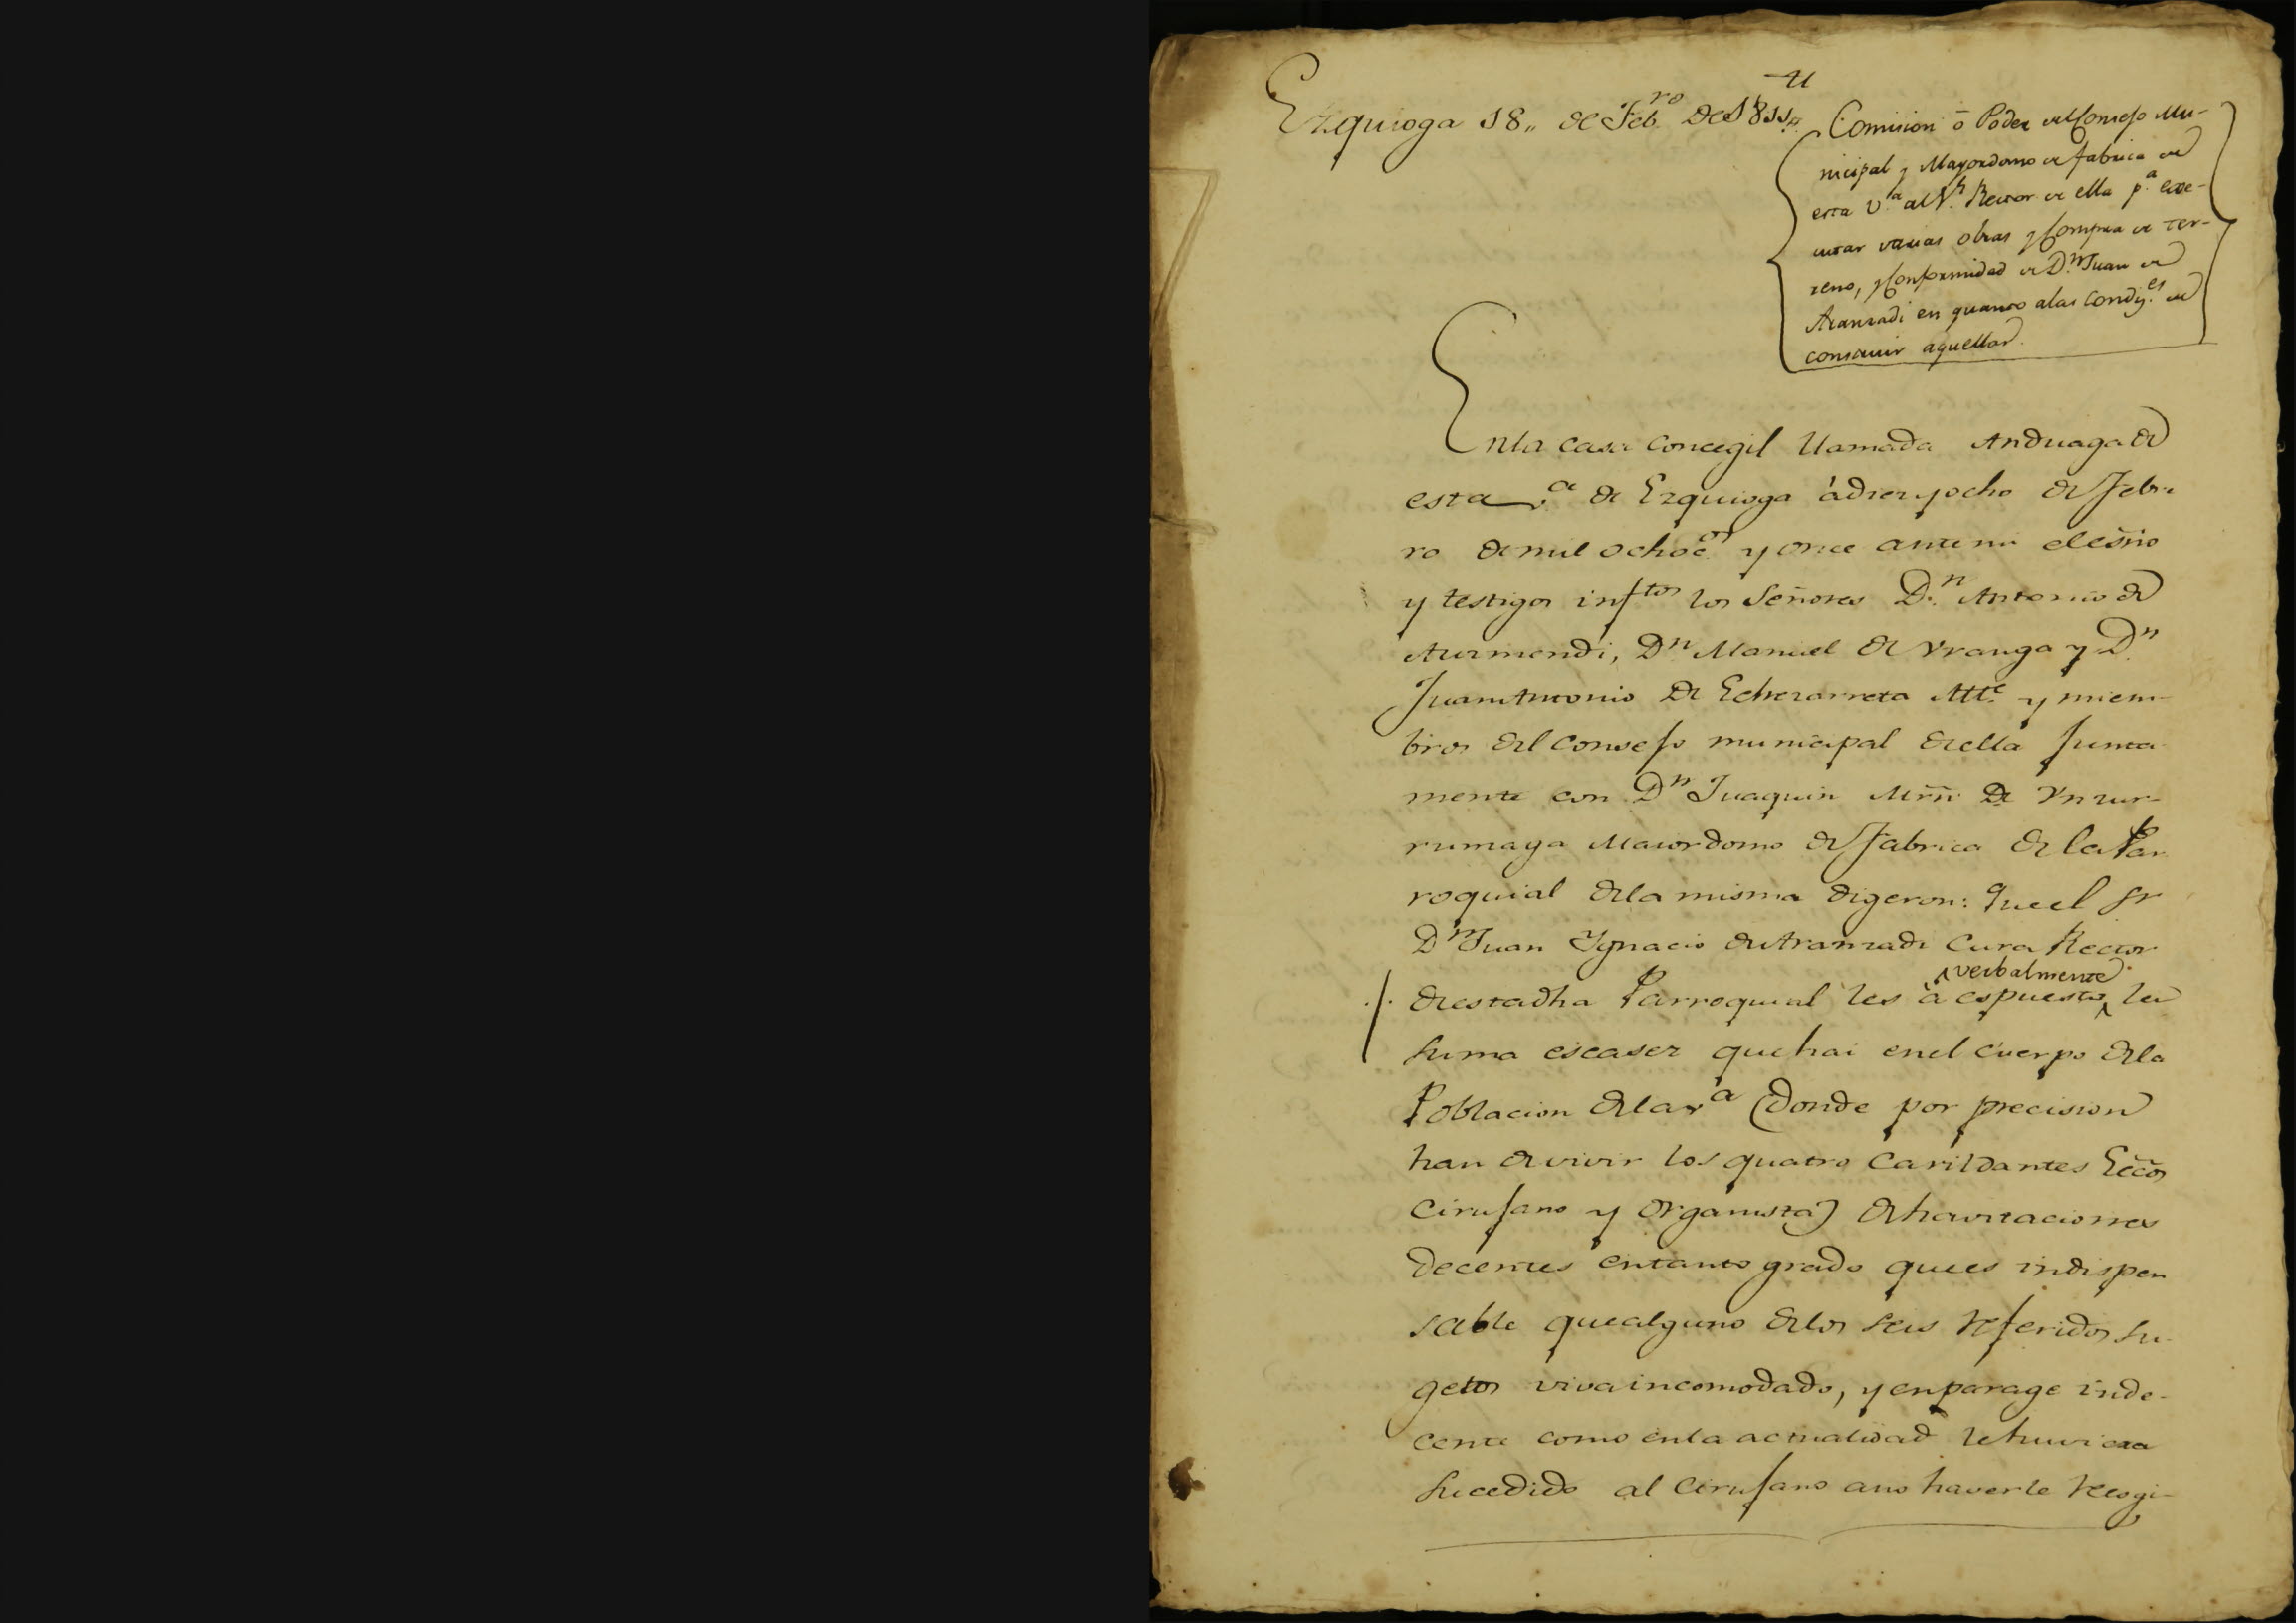 Ezquioga 18,, de Feb.ro de 1811,,
Comision ò Poder del Consejo Mu-
nicipal y Mayordomo de fabrica de
esta v.a al S.r Rector de ella p.a exe-
cutar varias obras y Compra de ter-
reno, y Conformidad de D.n Juan de
Aranzadi en quanto alas Condiz.es de
construir aquellas.
Enla casa concegil llamada Anduaga de
esta v.a de Ezquioga à diez y ocho de Febre
ro de mil ochoc.os y once ante mi el esño
y testigos inf.tos los Señores D.n Antonio de
Aizmendi, D.n Manuel de Vranga y D.n
Juan Antonio de Echezarreta Alle y miem-
bros del consejo municipal de ella Junta
mente con D.n Juaquin Mrñ de Ynzur-
rumaga Maiordomo de Fabrica de la Par
roquial dela misma digeron: Que el Sr
D.n Juan Ygnacio de Aranzadi Cura Rector
de esta dha Parroquial les à espuesto verbalmente la
Suma escasez que hai en el Cuerpo dela
Poblacion dela v.a (donde por precision
han de vivir los quatro Cavildantes Eccos
Cirujano y Organista) de havitaciones
decentes en tanto grado que es indispen
sable que alguno delos seis referidos su-
getos viva incomodado, y en parage inde-
cente como enla actualidad le huviera
Sucedido al Cirujano ano haverle recogi-